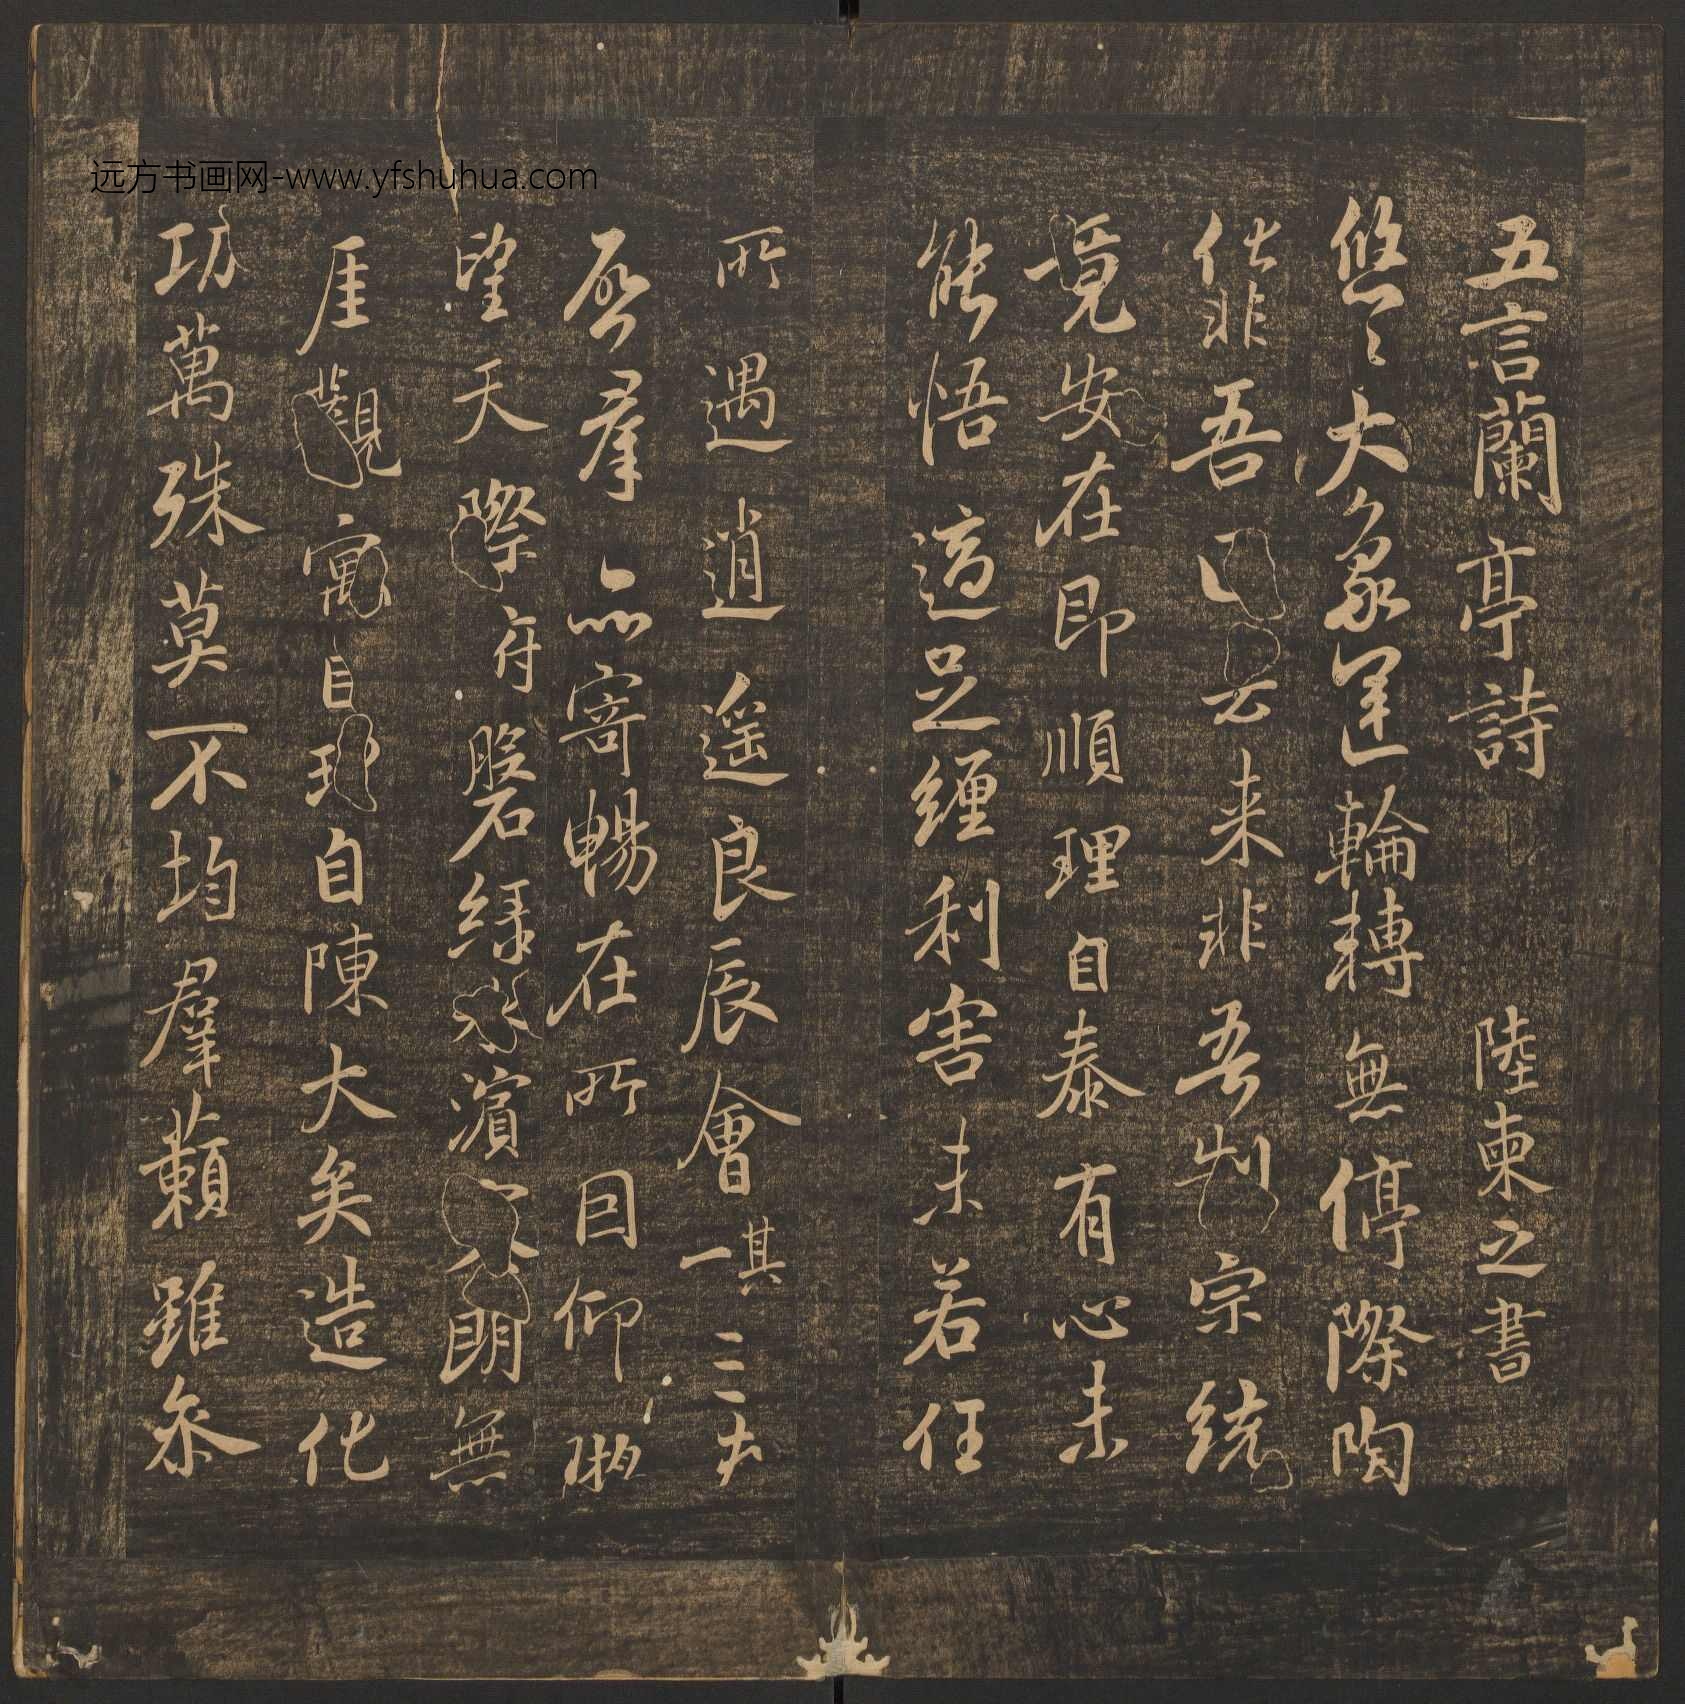 五言蘭亭詩 陸柬之書
悠〻大象運輪轉無停際陶
化非吾因去来非吾制宗統
竟安在即順理自泰有心未
能悟適足纏利害未若任
所遇逍遥良辰會其一 三春
啓群品寄暢在所因仰眺
望天際俯磐緑水濱寥朗無
厓觀寓目理自陳大矣造化
功萬殊莫不均群籟雖参
远方书画网-www.yfshuhua.com